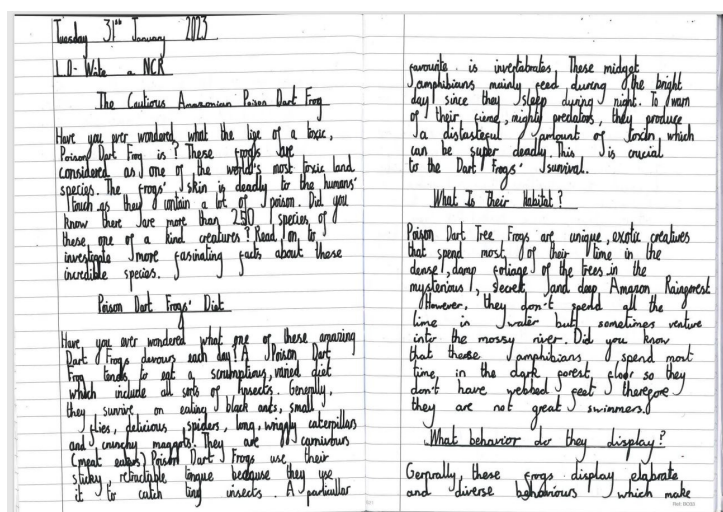 Tuesday 31st January 2023
LO- Write a NCR
The Cautious Amazonian Poison Dart Frog
Have you ever wondered what the life of a toxic,
Poison Dart Frog is? These frogs are
considered as one of the world's most toxic land
species. The frogs' skin is deadly to the humans'
touch as they contain a lot of poison. Did you
know there are more than 250 species of
these one of a kind creatures? Read on to
investigate more fasinating facts about these
incredible species.
Poison Dart Frogs' Diet
Have you ever wondered what one of these amazing
Dart Frogs devours each day? A Poison Dart
Frog tends to eat a scrumptious, varied diet
which include all sorts of insects. Generally,
they survive on eating black ants, small
flies, delicious spiders, long, wriggly caterpillars
and crunchy maggots. They are carnivours
(meat eaters) Poison Dart Frogs use their
sticky, retractable tongue because they use
it to catch tiny insects. A particular
favourite is invertabrates These midget
amphibians mainly feed during the bright
day since they sleep during night. To warn
of their, fierce, mighty predators, they produce
a distasteful amount of toxin which
can be super deadly. This is crucial
to the Dart Frogs' survival.
What Is Their Habitat?
Poison Dart Tree Frogs are unique, exotic creatures
that spend most of their time in the
dense, damp foliage of the trees in the
mysterious, secret and deep Amazon Rainforest
However, they don't spend all the
time in water but sometimes venture
into the mossy river. Did you know
that these amphibians spend most
time, in the dark forest floor so they
don't have webbed feet therefore
they are not great swimmers.
What behavior do they display?
Gernally, these frogs display elabrate
and diverse behaviours which make